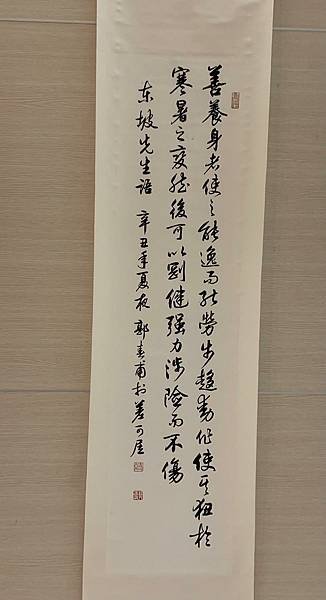 善養身者使之能逸而能勞步趨動作使其狃於
寒暑之变然後可以剛健强力涉險而不傷
东坡先生语 辛丑年夏夜 郭 甫於 可居